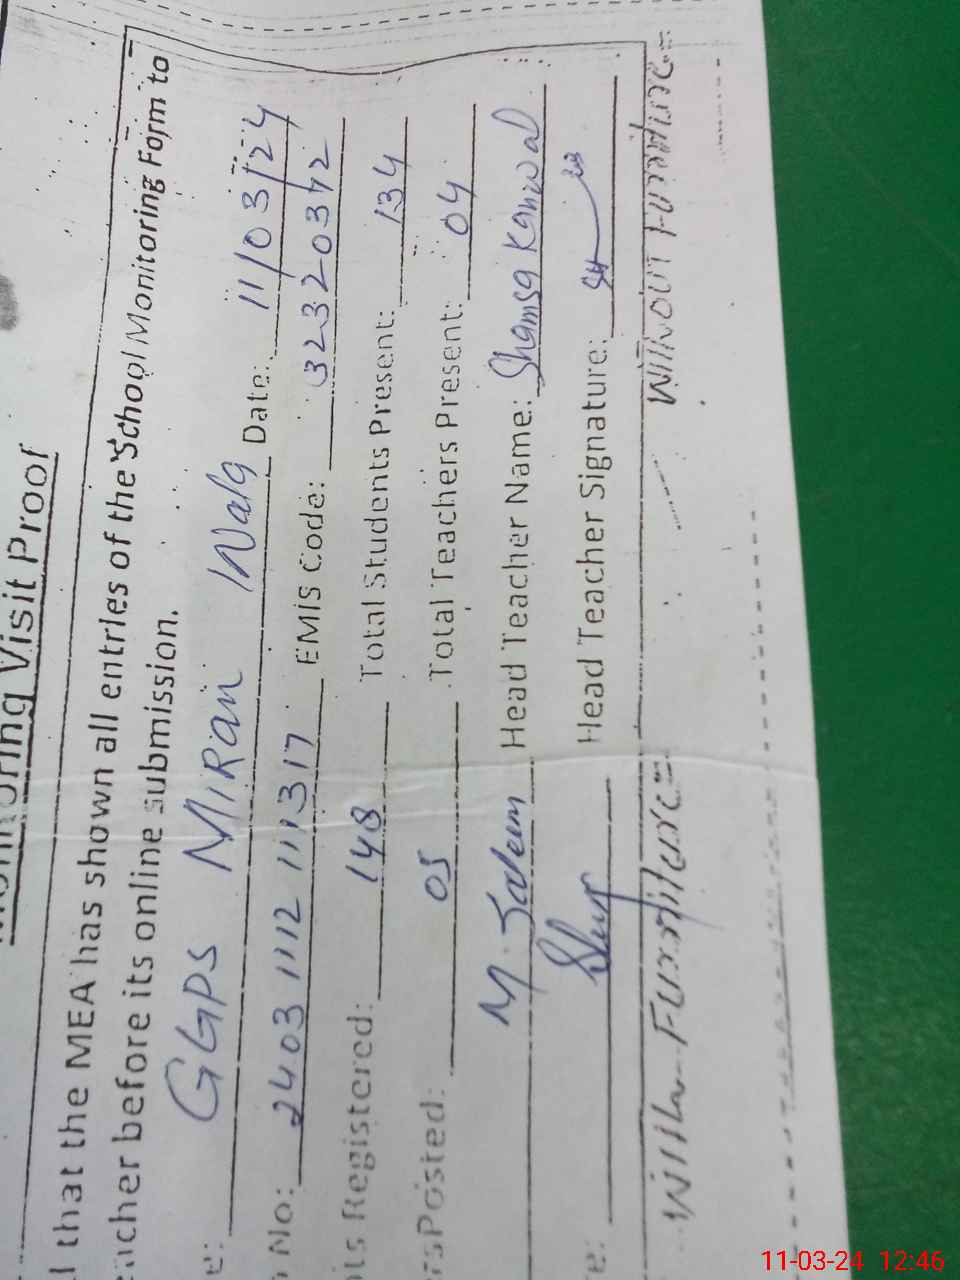 Monitoring Visit Proof
l that the MEA has shown all entries of the School Monitoring Form to
eacher before its online submission.
e: GGPS MIRAN Wala Date: 11/03/24
No: 2403 1112 111317 EMIS Code: 32320372
ts Registered: 148 Total Students Present: 134
rs Posted: 05 Total Teachers Present: 04
M. Saleem Head Teacher Name: Shamsa Kanwal
e: Head Teacher Signature:
With Furniture= Without Furniture=
11-03-24 12:46